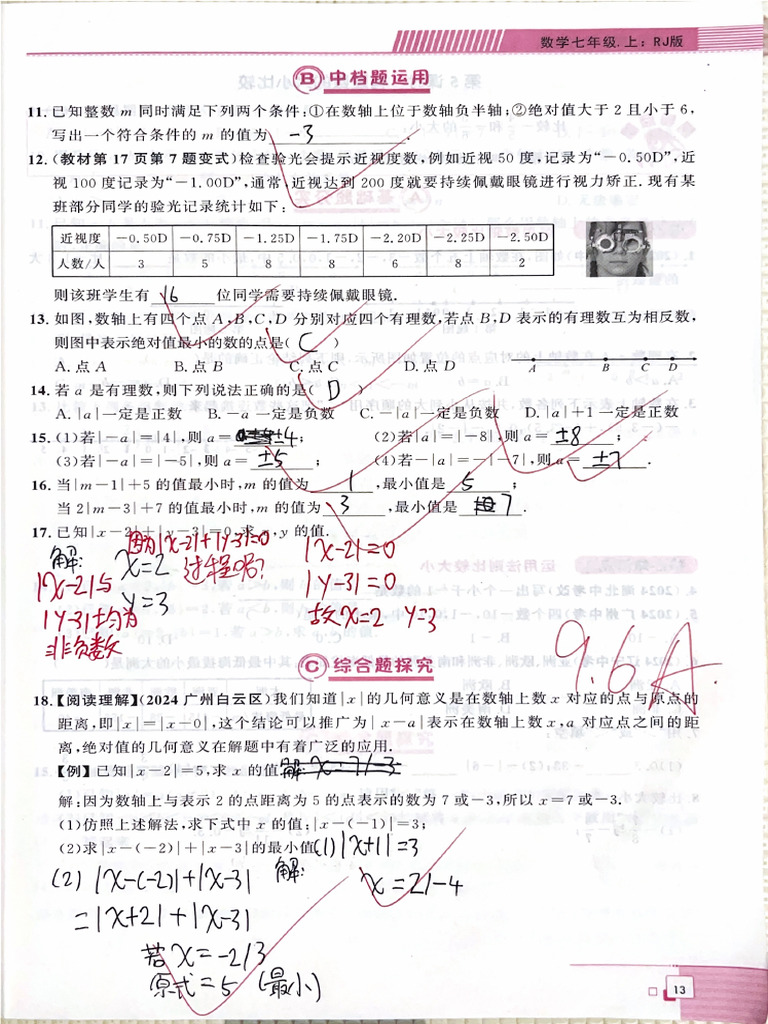 数学七年级.上：RJ版
B 中档题运用
11. 已知整数 m 同时满足下列两个条件:①在数轴上位于数轴负半轴;②绝对值大于 2 且小于 6,
写出一个符合条件的 m 的值为 -3 .
12. (教材第 17 页第 7 题变式)检查验光会提示近视度数,例如近视 50 度,记录为“-0.50D”,近
视 100 度记录为“-1.00D”,通常,近视达到 200 度就要持续佩戴眼镜进行视力矫正.现有某
班部分同学的验光记录统计如下:
近视度 -0.50D -0.75D -1.25D -1.75D -2.20D -2.25D -2.50D
人数/人 3 5 8 8 6 8 2
则该班学生有 16 位同学需要持续佩戴眼镜.
13. 如图,数轴上有四个点 A,B,C,D 分别对应四个有理数,若点 B,D 表示的有理数互为相反数,
则图中表示绝对值最小的数的点是( C )
A.点 A B.点 B C.点 C D.点 D
A B C D
14. 若 a 是有理数,则下列说法正确的是( D )
A. |a|一定是正数 B. -a 一定是负数 C. -|a|一定是负数 D. |a|+1 一定是正数
15. (1)若|-a|=|4|,则 a= ±4 ; (2)若|a|=|-8|,则 a= ±8 ;
(3)若|-a|=|-5|,则 a= ±5 ; (4)若-|a|=-|-7|,则 a= ±7 .
16. 当|m-1|+5 的值最小时,m 的值为 1 ,最小值是 5 ;
当 2|m-3|+7 的值最小时,m 的值为 3 ,最小值是 7 .
17. 已知|x-2|+|y-3|=0,求 x,y 的值.
因为|x-2|+|y-3|=0
解: x=2 过程呢? |x-2|=0
|x-2|与 y=3 |y-3|=0
|y-3|均为 故x=2 y=3
非负数
9.6 A
C 综合题探究
18.【阅读理解】(2024 广州白云区)我们知道|x|的几何意义是在数轴上数 x 对应的点与原点的
距离,即|x|=|x-0|,这个结论可以推广为|x-a|表示在数轴上数 x,a 对应点之间的距
离,绝对值的几何意义在解题中有着广泛的应用.
【例】已知|x-2|=5,求 x 的值. 解: x=7/-3
解:因为数轴上与表示 2 的点距离为 5 的点表示的数为 7 或-3,所以 x=7 或-3.
(1)仿照上述解法,求下式中 x 的值:|x-(-1)|=3;
(2)求|x-(-2)|+|x-3|的最小值. (1) |x+1|=3
(2) |x-(-2)|+|x-3| 解: x=2/-4
=|x+2|+|x-3|
若x=-2/3
原式=5 (最小)
13